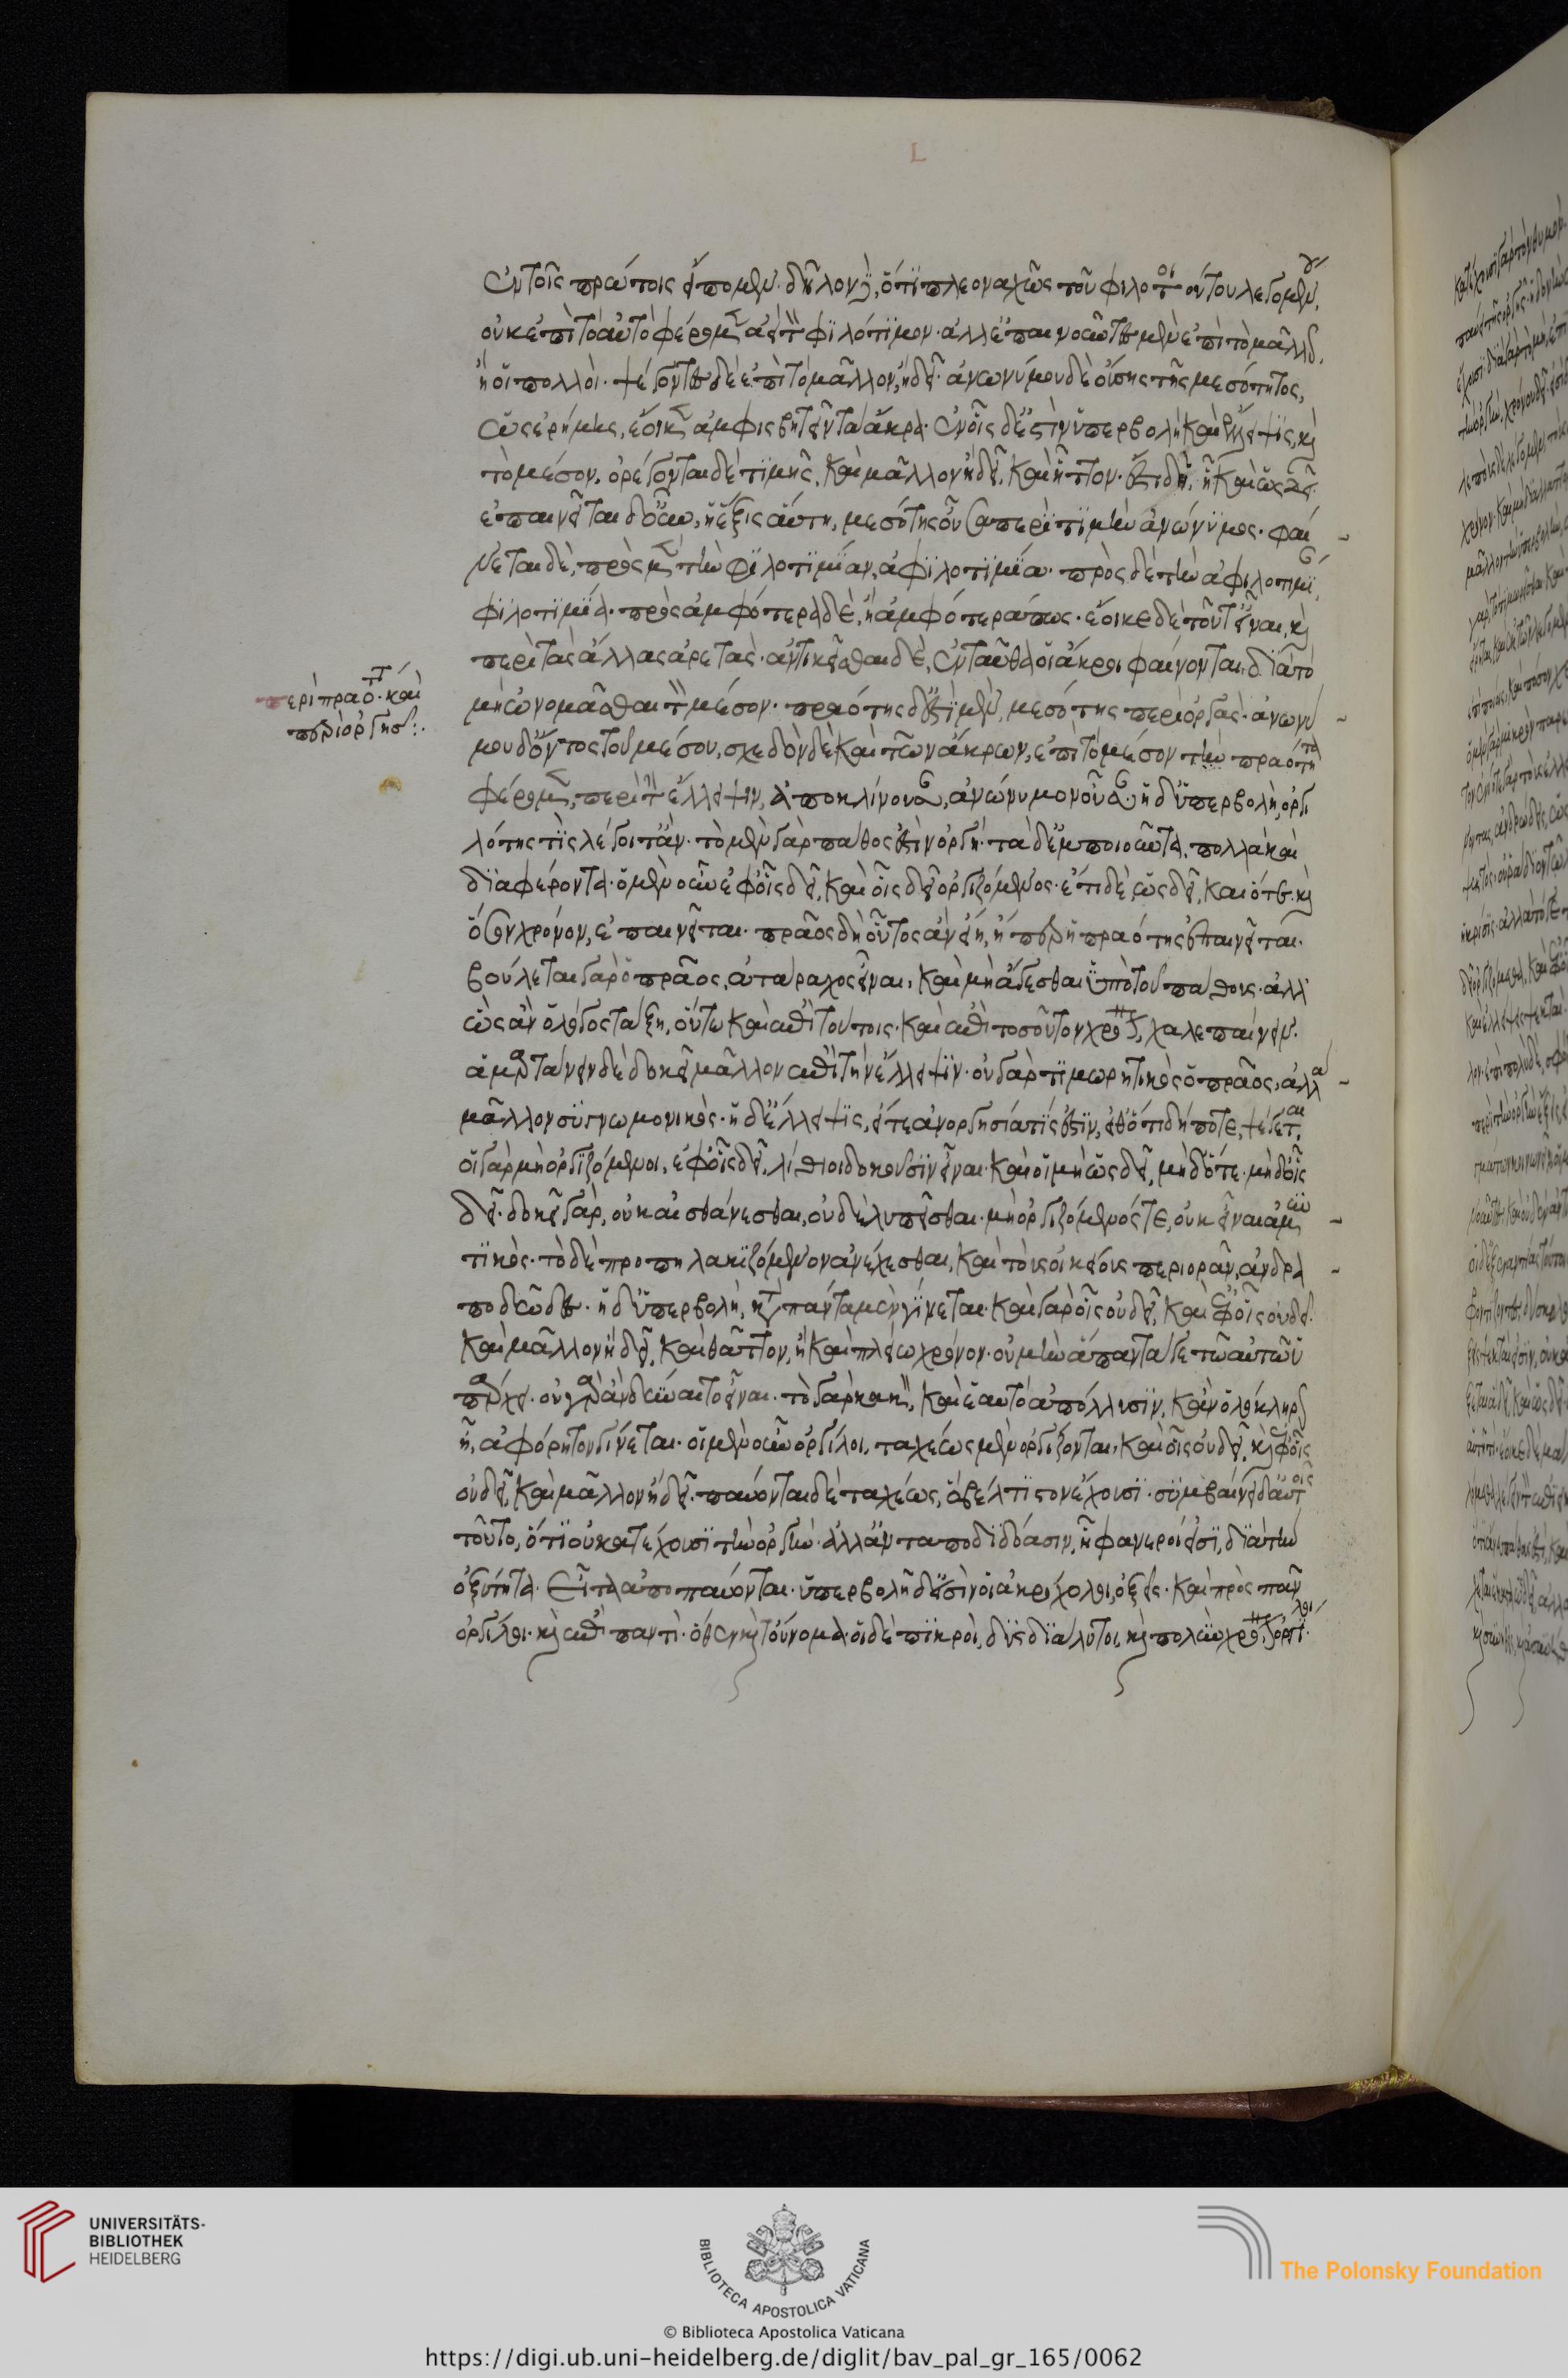 L
ἐν τοῖς πρώτοις εἴπομεν. δῆλον δ', ὅτι πλεοναχῶς τοῦ φιλοτοιούτου λεγομένου,
οὐκ ἐπὶ τὸ αὐτὸ φέρομεν ἀεὶ τὸ φιλότιμον. ἀλλ' ἐπαινοῦντες μὲν ἐπὶ τὸ μᾶλλον
ἢ οἱ πολλοί. ψέγοντες δὲ ἐπὶ τὸ μᾶλλον, ἢ δεῖ. ἀνωνύμου δὲ οὔσης τῆς μεσότητος,
ὡς ἐρήμης, ἔοικεν ἀμφισβητεῖν τὰ ἄκρα. ἐν οἷς δ' ἔστιν ὑπερβολὴ καὶ ἔλλειψις, καὶ
τὸ μέσον. ὀρέγονται δὲ τιμῆς, καὶ μᾶλλον ἢ δεῖ, καὶ ἧττον. ἔστι δ' ᾗ καὶ ὡς δεῖ.
ἐπαινεῖται δ' οὖν, ἡ ἕξις αὕτη, μεσότης οὖσα περὶ τιμὴν ἀνώνυμος. φαί
νεται δὲ, πρὸς μὲν τὴν φιλοτιμίαν, ἀφιλοτιμία. πρὸς δὲ τὴν ἀφιλοτιμίαν,
φιλοτιμία. πρὸς ἀμφότερα δὲ, ἢ ἀμφότερά πως. ἔοικε δὲ τοῦτ' εἶναι, καὶ
περὶ τὰς ἄλλας ἀρετάς. ἀντικεῖσθαι δὲ, ἐνταῦθα οἱ ἄκροι φαίνονται, διὰ τὸ
μὴ ὠνομᾶσθαι τὸ μέσον. πραότης δ' ἐστὶ μὲν, μεσότης περὶ ὀργάς. ἀνωνύ
μου δ' ὄντος τοῦ μέσου, σχεδὸν δὲ καὶ τῶν ἄκρων, ἐπὶ τὸ μέσον τὴν πραότητα
φέρομεν, περὶ τὴν ἔλλειψιν, ἀποκλίνουσαν, ἀνώνυμον οὖσαν. ἡ δ' ὑπερβολὴ, ὀργι
λότης τὶς λέγοιτ' ἄν. τὸ μὲν γὰρ πάθος ἐστὶν ὀργή. τὰ δ' ἐμποιοῦντα, πολλὰ καὶ
διαφέροντα. ὁ μὲν οὖν ἐφ' οἷς δεῖ, καὶ οἷς δεῖ ὀργιζόμενος. ἔτι δὲ, ὡς δεῖ, καὶ ὅτε. καὶ
ὅσον χρόνον, ἐπαινεῖται. πρᾶος δὴ οὗτος ἂν εἴη, εἴπερ ἡ πραότης ἐπαινεῖται.
βούλεται γὰρ ὁ πρᾶος, ἀτάραχος εἶναι, καὶ μὴ ἄγεσθαι ὑπὸ τοῦ πάθους. ἀλλ'
ὡς ἂν ὁ λόγος τάξῃ, οὕτω καὶ ἐπὶ τούτοις. καὶ ἐπὶ τοσοῦτον χρόνον, χαλεπαίνειν.
ἁμαρτάνειν δὲ δοκεῖ μᾶλλον ἐπὶ τὴν ἔλλειψιν. οὐ γὰρ τιμωρητικὸς ὁ πρᾶος, ἀλλὰ
μᾶλλον συγγνωμονικός. ἡ δ' ἔλλειψις, εἴτε ἀνοργησία τίς ἐστιν, εἴθ' ὅτι δήποτε, ψέγεται.
οἱ γὰρ μὴ ὀργιζόμενοι, ἐφ' οἷς δεῖ, ἠλίθιοι δοκοῦσιν εἶναι. καὶ οἱ μὴ ὡς δεῖ, μηδ' ὅτε. μηδ' οἷς
δεῖ. δοκεῖ γὰρ, οὐκ αἰσθάνεσθαι, οὐδὲ λυπεῖσθαι. μὴ ὀργιζόμενός τε, οὐκ εἶναι ἀμυν
τικός. τὸ δὲ προπηλακιζόμενον ἀνέχεσθαι, καὶ τοὺς οἰκείους περιορᾶν, ἀνδρα
ποδῶδες. ἡ δ' ὑπερβολὴ, κατὰ πάντα μὲν γίνεται. καὶ γὰρ οἷς οὐ δεῖ, καὶ ἐφ' οἷς οὐ δεῖ.
καὶ μᾶλλον ἢ δεῖ, καὶ θᾶττον, ἢ καὶ πλείω χρόνον. οὐ μὴν ἅπαντά γε τῷ αὐτῷ ὑ
πάρχει. οὐ γὰρ ἂν δύναιτο εἶναι. τὸ γὰρ κακὸν, καὶ ἑαυτὸ ἀπόλλυσιν, κἂν ὁλόκληρον
ᾖ, ἀφόρητον γίνεται. οἱ μὲν οὖν ὀργίλοι, ταχέως μὲν ὀργίζονται, καὶ οἷς οὐ δεῖ, καὶ ἐφ' οἷς
οὐ δεῖ, καὶ μᾶλλον ἢ δεῖ. παύονται δὲ ταχέως, ὃ βέλτιστον ἔχουσι. συμβαίνει δ' αὐτοῖς
τοῦτο, ὅτι οὐ κατέχουσι τὴν ὀργήν. ἀλλ' ἀνταποδιδόασιν, ᾗ φανεροί εἰσι, διὰ τὴν
ὀξύτητα. εἶτα ἀποπαύονται. ὑπερβολῇ δ' εἰσὶν οἱ ἀκρόχολοι, ὀξεῖς. καὶ πρὸς πᾶν
ὀργίλοι. καὶ ἐπὶ παντί. ὅθεν καὶ τοὔνομα. οἱ δὲ πικροὶ, δυσδιάλυτοι, καὶ πολὺν χρόνον ὀργίλοι.
περὶ πραότητ. καὶ
περὶ ὀργησ:.
UNIVERSITÄTS-
BIBLIOTHEK
HEIDELBERG
BIBLIOTECA APOSTOLICA VATICANA
The Polonsky Foundation
© Biblioteca Apostolica Vaticana
https://digi.ub.uni-heidelberg.de/diglit/bav_pal_gr_165/0062